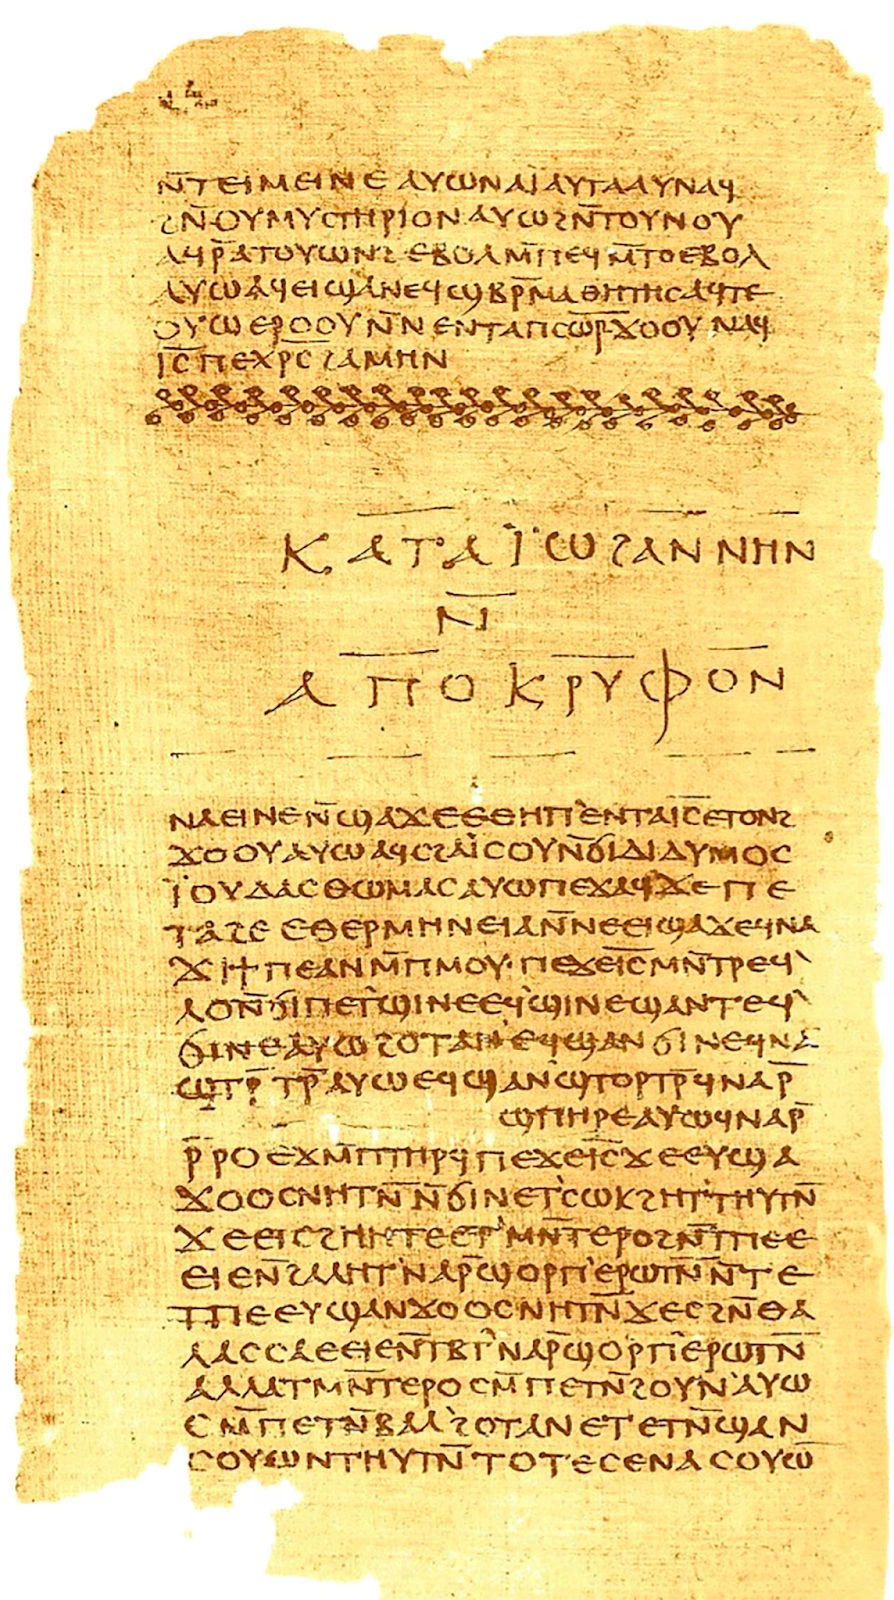 ⲛ̄ⲧⲉⲓⲙⲉⲓⲛⲉ ⲁⲩⲱ ⲛⲁⲓ̈ ⲁⲩⲧⲁⲁⲩ ⲛⲁϥ
ϩⲛ̄ ⲟⲩⲙⲩⲥⲧⲏⲣⲓⲟⲛ ⲁⲩⲱ ϩⲛ̄ ⲧⲟⲩⲛⲟⲩ
ⲁϥⲣ̄ ⲁⲧⲟⲩⲱⲛϩ ⲉⲃⲟⲗ ⲙ̄ⲡⲉϥⲙ̄ⲧⲟ ⲉⲃⲟⲗ
ⲁⲩⲱ ⲁϥⲉⲓ ϣⲁ ⲛⲉϥϣⲃⲣ̄ⲙⲁⲑⲏⲧⲏⲥ ⲁϥⲧⲉ
ⲟⲩⲱ ⲉⲣⲟⲟⲩ ⲛ̄ⲛⲉⲛⲧⲁ ⲡⲥⲱ̅ⲣ̅ ϫⲟⲟⲩ ⲛⲁϥ
ⲓ̅ⲥ̅ ⲡⲉⲭⲣ̅ⲥ̅ ϩⲁⲙⲏⲛ
ⲕⲁⲧⲁ ⲓ̈ⲱϩⲁⲛⲛⲏⲛ
ⲛ̄ⲓ
ⲁⲡⲟⲕⲣⲩⲫⲟⲛ
ⲛⲁⲉⲓ ⲛⲉ ⲛ̄ϣⲁϫⲉ ⲉⲑⲏⲡ ⲉⲛⲧⲁ ⲓ̅ⲥ̅ ⲉⲧⲟⲛϩ
ϫⲟⲟⲩ ⲁⲩⲱ ⲁϥⲥϩⲁⲓ̈ⲥⲟⲩ ⲛ̄ϭⲓ ⲇⲓⲇⲩⲙⲟⲥ
ⲓ̈ⲟⲩⲇⲁⲥ ⲑⲱⲙⲁⲥ ⲁⲩⲱ ⲡⲉϫⲁϥ ϫⲉ ⲡⲉ
ⲧⲁϩⲉ ⲉⲑⲉⲣⲙⲏⲛⲉⲓⲁ ⲛ̄ⲛⲉⲉⲓϣⲁϫⲉ ϥⲛⲁ
ϫⲓ ϯⲡⲉ ⲁⲛ ⲙ̄ⲡⲙⲟⲩ· ⲡⲉϫⲉ ⲓ̅ⲥ̅ ⲙⲛ̄ⲧⲣⲉϥ
ⲗⲟ ⲛ̄ϭⲓ ⲡⲉⲧϣⲓⲛⲉ ⲉϥϣⲓⲛⲉ ϣⲁⲛⲧⲉϥ
ϭⲓⲛⲉ ⲁⲩⲱ ϩⲟⲧⲁⲛ ⲉϥϣⲁⲛϭⲓⲛⲉ ϥⲛⲁ
ϣⲧⲣ̄ⲧⲣ̄ ⲁⲩⲱ ⲉϥϣⲁⲛϣⲧⲟⲣⲧⲣ̄ ϥⲛⲁⲣ̄
ϣⲡⲏⲣⲉ ⲁⲩⲱ ϥⲛⲁⲣ̄
ⲣ̄ⲣⲟ ⲉϫⲙ̄ ⲡⲧⲏⲣϥ ⲡⲉϫⲉ ⲓ̅ⲥ̅ ϫⲉ ⲉⲩϣⲁ
ϫⲟⲟⲥ ⲛⲏⲧⲛ̄ ⲛ̄ϭⲓ ⲛⲉⲧⲥⲱⲕ ϩⲏⲧ ⲧⲏⲩⲧⲛ̄
ϫⲉ ⲉⲓⲥϩⲏⲏⲧⲉ ⲉⲧⲙⲛ̄ⲧⲉⲣⲟ ϩⲛ̄ ⲧⲡⲉ ⲉ
ⲉⲓⲉ ⲛ̄ϩⲁⲗⲏⲧ ⲛⲁⲣ̄ ϣⲟⲣⲡ ⲉⲣⲱⲧⲛ̄ ⲛ̄ⲧⲉ
ⲧⲡⲉ ⲉⲩϣⲁⲛϫⲟⲟⲥ ⲛⲏⲧⲛ̄ ϫⲉ ⲥϩⲛ̄ ⲑⲁ
ⲗⲁⲥⲥⲁ ⲉⲉⲓⲉ ⲛ̄ⲧⲃⲧ ⲛⲁⲣ̄ ϣⲟⲣⲡ ⲉⲣⲱⲧⲛ̄
ⲁⲗⲗⲁ ⲧⲙⲛ̄ⲧⲉⲣⲟ ⲥⲙ̄ⲡⲉⲧⲛ̄ϩⲟⲩⲛ ⲁⲩⲱ
ⲥⲙ̄ⲡⲉⲧⲛ̄ⲃⲁⲗ ϩⲟⲧⲁⲛ ⲉⲧⲉⲧⲛ̄ϣⲁⲛ
ⲥⲟⲩⲱⲛ ⲧⲏⲩⲧⲛ̄ ⲧⲟⲧⲉ ⲥⲉⲛⲁⲥⲟⲩⲱ